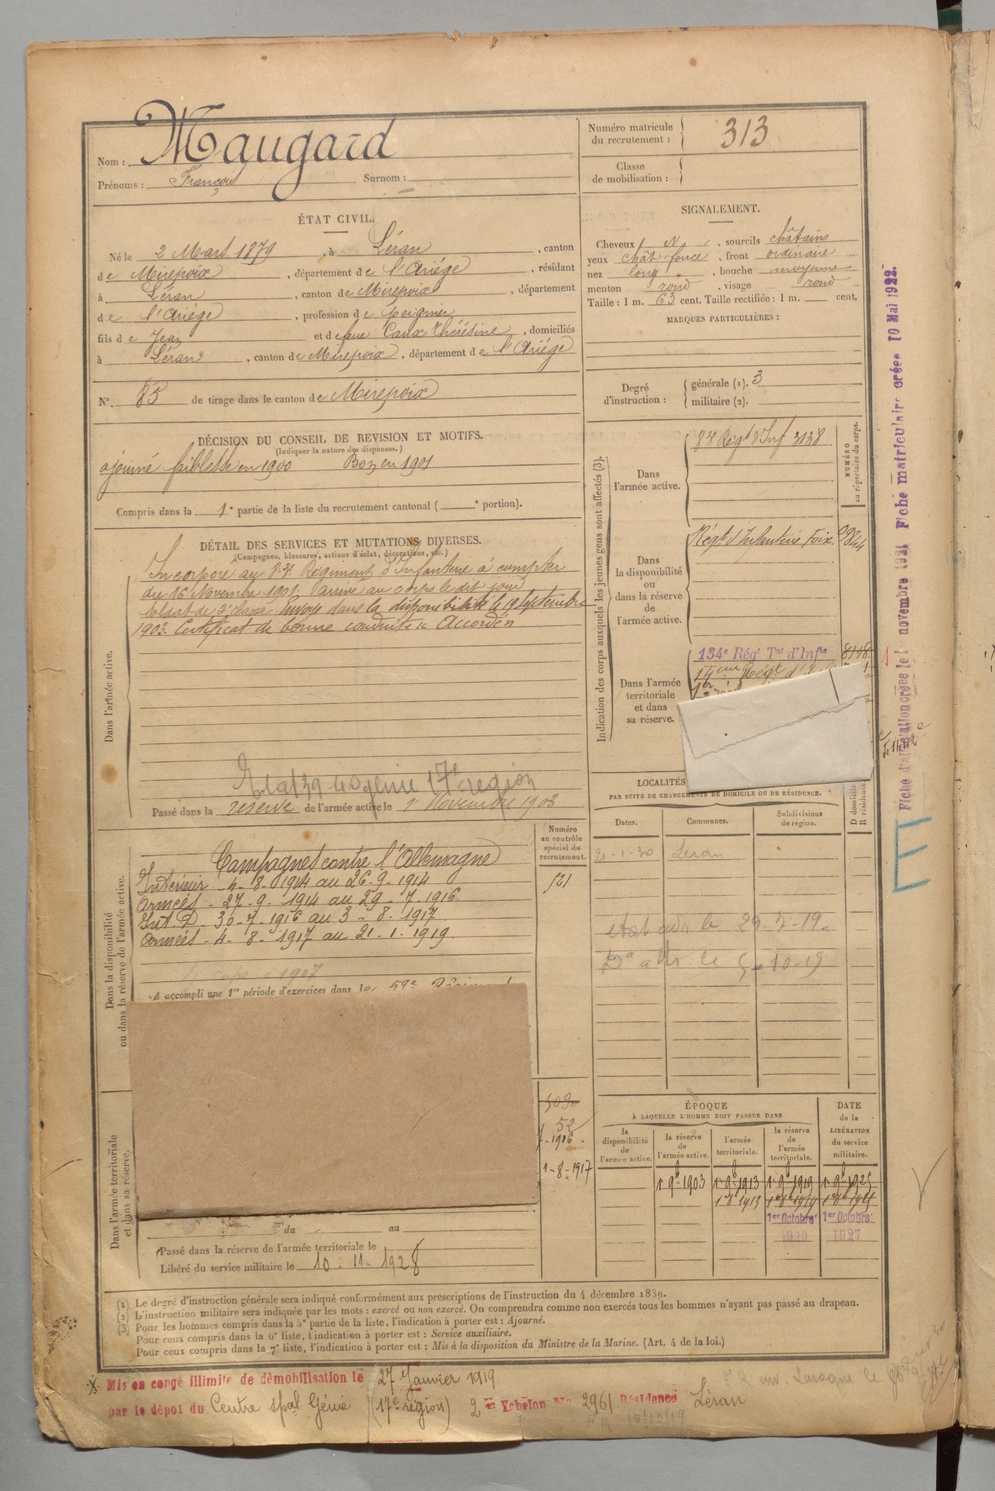 Nom : Maugard
Prénoms : François Surnom :
Numéro matricule du recrutement : 313
Classe de mobilisation :
ÉTAT CIVIL.
Né le 2 Mars 1879, à Léran, canton
de Mirepoix, département de l'Ariège, résidant
à Léran, canton de Mirepoix, département
de l'Ariège, profession de
fils de Jean et de feue Caux Thérésine, domiciliés
à Léran, canton de Mirepoix, département de l'Ariège
N° 85 de tirage dans le canton de Mirepoix
SIGNALEMENT.
Cheveux N, sourcils châtains
yeux chât foncé, front ordinaire
nez long, bouche moyenne
menton rond, visage rond
Taille : 1 m. 63 cent. Taille rectifiée : 1 m. cent.
MARQUES PARTICULIÈRES :
Degré d'instruction : générale (1). 3
militaire (2).
DÉCISION DU CONSEIL DE REVISION ET MOTIFS.
(Indiquer la nature des dispenses.)
ajourné faiblesse en 1900 Bon en 1901
Compris dans la 1e partie de la liste du recrutement cantonal ( e portion).
DÉTAIL DES SERVICES ET MUTATIONS DIVERSES.
(Campagnes, blessures, actions d'éclat, décorations, etc.)
Dans l'armée active.
Incorporé au 83e Régiment d'Infanterie à compter
du 16 Novembre 1901, arrivé au corps le dit jour
Soldat de 2e classe. Envoyé dans la disponibilité le 19 Septembre
1903. Certificat de bonne conduite Accordé
génie 17e région
Passé dans la réserve de l'armée active le 1er Novembre 1903
Indication des corps auxquels les jeunes gens sont affectés (3).
NUMÉRO au répertoire du corps.
Dans l'armée active.
83e Régt d'Inf 3138
Dans la disponibilité ou dans la réserve de l'armée active.
Régt d'Infanterie Foix
Dans l'armée territoriale et dans sa réserve.
134e Rég' T'al d'Inf'ie
LOCALITÉS
PAR SUITE DE CHANGEMENTS DE DOMICILE OU DE RÉSIDENCE.
Dates. Communes. Subdivisions de région. D domicile R résidence
2-1-30 Léran
29-7-19
10-19
Dans la disponibilité ou dans la réserve de l'armée active.
Numéro au contrôle spécial du recrutement.
521
Campagnes contre l'Allemagne
Intérieur - 4-8-1914 au 26-9-1914
Armées - 27-9-1914 au 29-7-1916
Int. D 30-7-1916 au 3-8-1917
Armées - 4-8-1917 au 21-1-1919
A accompli une 1re période d'exercices dans le 59e Régiment
Dans l'armée territoriale et dans sa réserve.
1916
1-8-1917
du au
Passé dans la réserve de l'armée territoriale le
Libéré du service militaire le 10-11-1928
ÉPOQUE
À LAQUELLE L'HOMME DOIT PASSER DANS
la disponibilité de l'armée active.
la réserve de l'armée active.
l'armée territoriale.
la réserve de l'armée territoriale.
DATE de la LIBÉRATION du service militaire.
1er 9b 1903 1er 9b 1913 1er 9b 1919 1er 9b 1925
1er Octobre 1920 1er Octobre 1927
(1) Le degré d'instruction générale sera indiqué conformément aux prescriptions de l'instruction du 4 décembre 1889.
(2) L'instruction militaire sera indiquée par les mots : exercé ou non exercé. On comprendra comme non exercés tous les hommes n'ayant pas passé au drapeau.
(3) Pour les hommes compris dans la 5e partie de la liste, l'indication à porter est : Ajourné.
Pour ceux compris dans la 6e liste, l'indication à porter est : Service auxiliaire.
Pour ceux compris dans la 7e liste, l'indication à porter est : Mis à la disposition du Ministre de la Marine. (Art. 4 de la loi.)
Mis en congé illimité de démobilisation le 27 Janvier 1919
par le dépôt du Centre spal Génie (17e région) 2me Echelon No 2961 Résidence Léran
novembre 1921 Fiche matriculaire créée 10 Mai 1922.